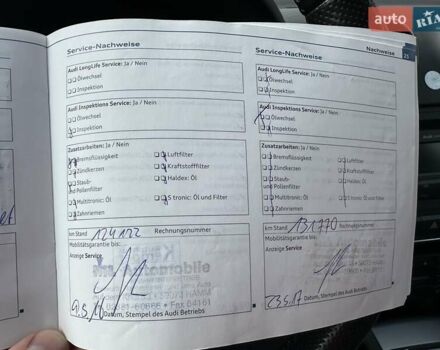 auto RIA
Service-Nachweise
Audi LongLife Service: Ja / Nein
Ölwechsel
Inspektion
Audi Inspektions Service: Ja / Nein
Ölwechsel
Inspektion
Zusatzarbeiten: Ja / Nein
Bremsflüssigkeit
Luftfilter
Zündkerzen
Kraftstofffilter
Staub-
und Pollenfilter
Haldex: Öl
Multitronic: Öl
S tronic: Öl und Filter
Zahnriemen
km Stand 124122 Rechnungsnummer
Mobilitätsgarantie bis:
Anzeige Service
Automobile
59073 HAMM
Fax 04161
Datum, Stempel des Audi Betriebs
Service-Nachweise
Nachweise
Audi LongLife Service: Ja / Nein
Ölwechsel
Inspektion
Audi Inspektions Service: Ja / Nein
Ölwechsel
Inspektion
Zusatzarbeiten: Ja / Nein
Bremsflüssigkeit
Luftfilter
Zündkerzen
Kraftstofffilter
Staub-
und Pollenfilter
Haldex: Öl
Multitronic: Öl
S tronic: Öl und Filter
Zahnriemen
km Stand 131770 Rechnungsnummer
Mobilitätsgarantie bis:
Anzeige Service
23.5.17
Datum, Stempel des Audi Betriebs